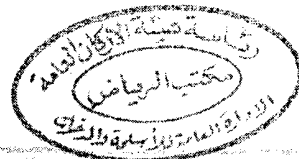 رئاسة هيئة الأركان العامة
مكتب الرياض
الإدارة العامة للأسلحة والمدخرات